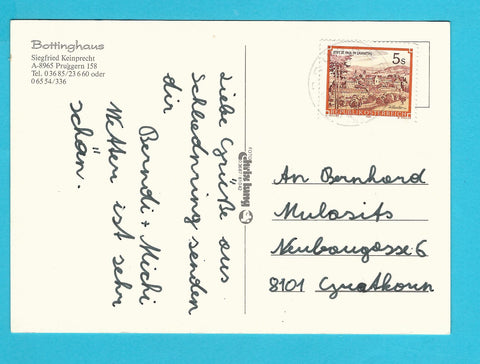 Bottinghaus
Siegfried Keinprecht
A-8965 Pruggern 158
Tel. 0 36 85/23 6 60 oder
0 65 54/336
Liebe Grüße aus
Schladming senden
dir
Berndi + Michi
Wetter ist sehr
schön.
5s
REPUBLIK ÖSTERREICH
An Bernhard
Mulasits
Neubaugasse 6
8101 Gratkorn